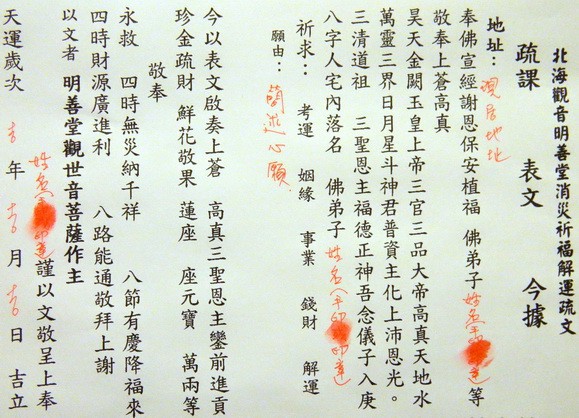 北海觀音明善堂消災祈福解運疏文
疏課 表文 今據
地址：現居地址
奉佛宣經謝恩保安植福 佛弟子 姓名 手印 等
敬奉上蒼高真
昊天金闕玉皇上帝三官三品大帝高真天地水
萬靈三界日月星斗神君普資主化上沛恩光。
三清道祖 三聖恩主福德正神吾念儀子入庚
八字人宅內落名 佛弟子 姓名（手印
祈求： 考運 姻緣 事業 錢財 解運
願由： 簡述心願
今以表文啟奏上蒼 高真三聖恩主鑾前進貢
珍金疏財 鮮花敬果 蓮座 座元寶 萬兩等
敬奉
永救 四時無災納千祥 八節有慶降福來
四時財源廣進利 八路能通敬拜上謝
以文者 明善堂觀世音菩薩作主
姓名 謹以文敬呈上奉
天運歲次 吉 年 吉 月 吉 日 吉立